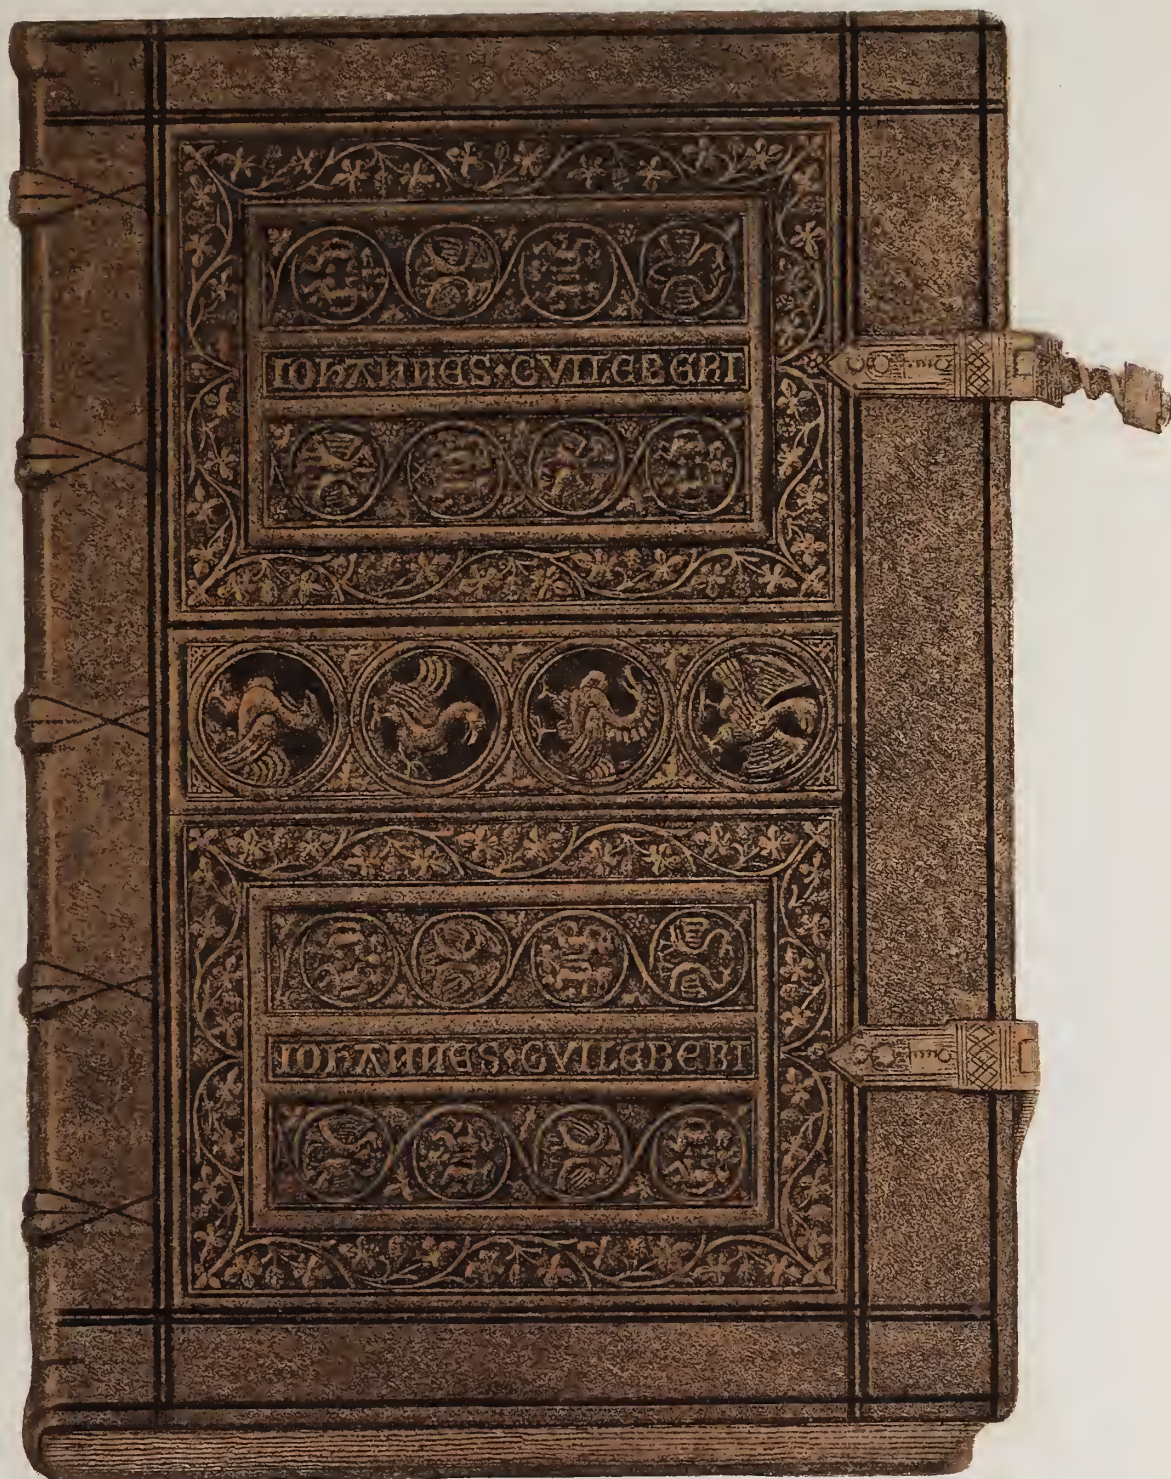 IOHANNES·GVILEBERT
IOHANNES·GVILEBERT